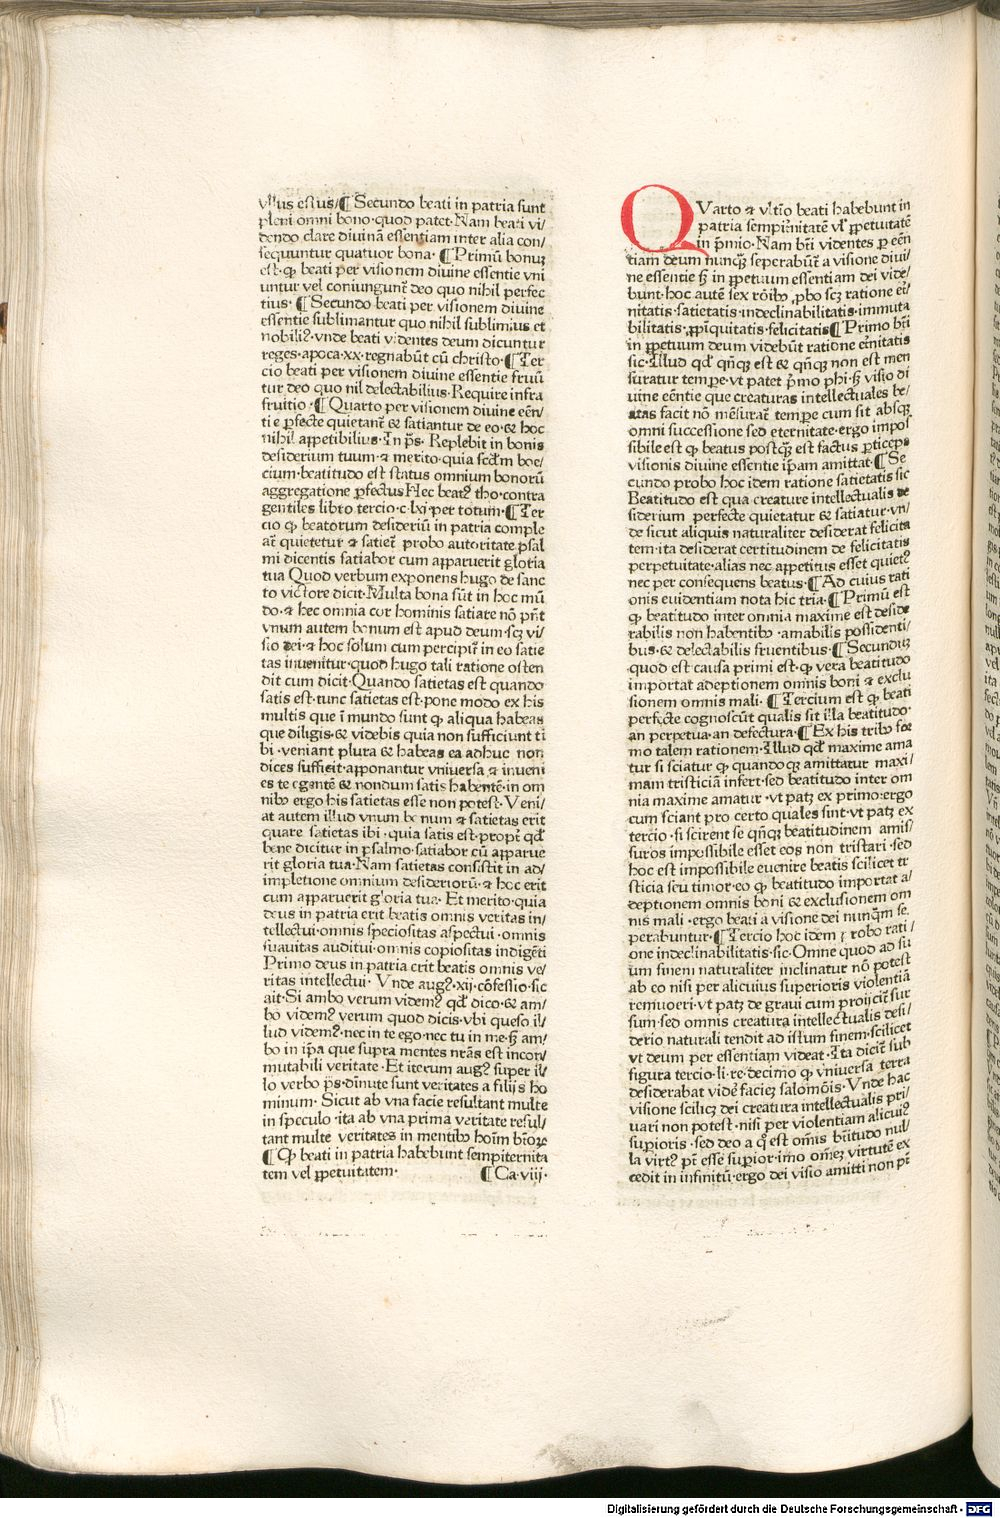 vllus estus/¶ Secundo beati in patria sunt
pleni omni bono·quod patet·Nam beati vi/
dendo clare diuinā essentiam inter alia con/
sequuntur quatuor bona· ¶Primū bonuȝ
est·ꝙ beati per visionem diuine essentie vni
untur vel coniungunt̄ deo quo nihil perfec
tius· ¶Secundo beati per visionem diuine
essentie sublimantur quo nihil sublimius et
nobili9·vnde beati videntes deum dicuntur
reges·apoca·xx·regnabūt cū christo·¶Ter
cio beati per visionem diuine essentie fruū
tur deo quo nil delectabilius·Require infra
fruitio·¶Quarto per visionem diuine eēn/
tie ꝑfecte quietant̄ & satiantur de eo·& hoc
nihil appetibilius·In ps̄· Replebit in bonis
desiderium tuum·⁊ merito·quia scd̄m boe/
cium·beatitudo est status omnium bonorū
aggregatione ꝑfectus Hec beat9 tho·contra
gentiles libro tercio·c·lxi·per totum·¶Ter
cio ꝙ beatorum desideriū in patria comple
at̄ quietetur ⁊ satiet̄ probo autoritate psal
mi dicentis satiabor cum apparuerit gloria
tua Quod verbum exponens hugo de sanc
to victore dicit·Multa bona sūt in hoc mū
do·⁊ hec omnia cor hominis satiare nō pn̄t
vnum autem bonum est apud deum·scȝ vi/
sio dei·⁊ hoc solum cum percipit̄ in eo satie
tas inuenitur·quod hugo tali ratione osten
dit cum dicit·Quando satietas est quando
satis est·tunc satietas est·pone modo ex his
multis que ī mundo sunt ꝙ aliqua habeas
que diligis·& videbis quia non sufficiunt ti
bi·veniant plura & habeas ea adhuc non
dices sufficit·apponantur vniuersa ⁊ inueni
es te egentē & nondum satis habentē·in om
nibꝰ ergo his satietas esse non potest·Veni/
at autem illud vnum bonum & satietas erit
quare satietas ibi·quia satis est·propt̄ qd̄
bene dicitur in psalmo·satiabor cū apparue
rit gloria tua·Nam satietas consistit in ad/
impletione omnium desideriorū·⁊ hoc erit
cum apparuerit gloria tua· Et merito·quia
deus in patria erit beatis omnis veritas in/
tellectui·omnis speciositas aspectui·omnis
suauitas auditui·omnis copiositas indigēti
Primo deus in patria erit beatis omnis ve/
ritas intellectui· Vnde aug9·xij·cōfessio·sic
ait·Si ambo verum videm9 qd̄ dico·& am/
bo videm9 verum quod dicis·vbi queso il/
lud videm9·nec in te ego·nec tu in me·ss̄ am/
bo in ip̄a que supra mentes nrās est incon/
mutabili veritate·Et iterum aug9 super il/
lo verbo ps̄·dīnute sunt veritates a filiis ho
minum· Sicut ab vna facie resultant multe
in speculo·ita ab vna prima veritate resul/
tant multe veritates in mentibꝰ hoīm bīoꝝ
¶Ꝙ beati in patria habebunt sempiternita
tem vel ꝑpetuitatem· ¶Ca·viij·
QVarto ⁊ vltīo beati habebunt in
patria sempit̄nitatē vl̄ ꝑpetuitatē
in p̄mio·Nam bt̄i videntes ꝑ eēn
tiam deum nunqȝ seperabūt̄ a visione diui/
ne essentie ss̄ in ꝑpetuum essentiam dei vide/
bunt·hoc autē sex rōibꝰ ꝓbo scȝ ratione et̄/
nitatis·satietatis·indeclinabilitatis·immuta
bilitatis·ꝓpīquitatis·felicitatis¶Primo bt̄i
in ꝑpetuum deum videbūt ratione et̄nitatis
sic·Illud qd̄ qn̄qȝ est & qn̄qȝ non est men
suratur tempe·vt patet p̄mo phi·ss̄ visio di
uine eēntie que creaturas intellectuales be/
atas facit nō mēsurat̄ tempe cum sit absqȝ
omni successione sed eternitate·ergo impos
sibile est ꝙ beatus postqȝ est factus ꝑticeps
visionis diuine essentie ip̄am amittat·¶Se
cundo probo hoc idem ratione satietatis sic
Beatitudo est qua creature intellectualis de
siderium perfecte quietatur & satiatur·vn/
de sicut aliquis naturaliter desiderat felicita
tem·ita desiderat certitudinem de felicitatis
perpetuitate·alias nec appetitus esset quiet9
nec per consequens beatus·¶Ad cuius rati
onis euidentiam nota hic tria·¶Primū est
ꝙ beatitudo inter omnia maxime est deside
rabilis non habentibꝰ·amabilis possidenti/
bus·& delectabilis fruentibus·¶Secunduȝ
quod est causa primi est·ꝙ vera beatitudo
importat adeptionem omnis boni ⁊ exclu
sionem omnis mali· ¶Tercium est ꝙ beati
perfecte cognoscūt qualis sit illa beatitudo·
an perpetua·an defectura·¶Ex his tribꝰ for
mo talem rationem·Illud qd̄ maxime ama
tur si sciatur ꝙ quandoqȝ amittatur maxi/
mam tristiciā infert·sed beatitudo inter om
nia maxime amatur·vt patȝ ex primo·ergo
cum sciant pro certo quales sint·vt patȝ ex
tercio·si scirent se qn̄qȝ beatitudinem amis/
suros impossibile esset eos non tristari·sed
hoc est impossibile euenire beatis scilicet tr
sticia seu timor·eo ꝙ beatitudo importat a/
deptionem omnis boni & exclusionem om
nis mali·ergo beati a visione dei nunqm̄ se
perabuntur·¶Tercio hoc idem probo rati/
one indeclinabilitatis·sic·Omne quod ad su
um finem naturaliter inclinatur nō potest
ab eo nisi per alicuius superioris violentiā
remoueri·vt patȝ de graui cum proijcit̄ sur
sum·sed omnis creatura intellectualis desi/
derio naturali tendit ad istum finem·scilicet
vt deum per essentiam videat·Ita dicit̄ sub
figura tercio·li·re·decimo ꝙ vniuersa terra
desiderabat vidē facieȝ salomōis·Vnde hac
visione scilicȝ dei creatura intellectualis pri/
uari non potest·nisi per violentiam alicui9
supioris·sed deo a q̄ est om̄is bt̄itudo nul/
la virt9 pt̄ esse supior·imo om̄eȝ virtutē ex
cedit in infinitū·ergo dei visio amitti non pt̄
Digitalisierung gefördert durch die Deutsche Forschungsgemeinschaft - DFG